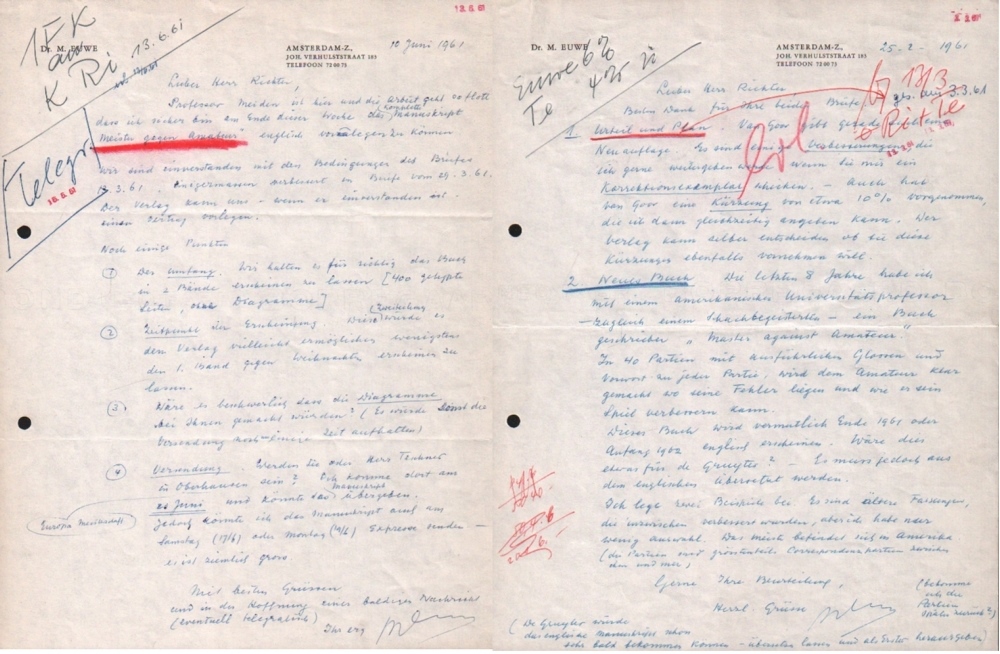 12.6.61
15 K
K Ri 13.6.61
Dr. M. EUWE
AMSTERDAM-Z.,
JOH. VERHULSTSTRAAT 185
TELEFOON 72 00 75
10 Juni 1961
Telegr.
Lieber Herr Richter,
Professor Meiden ist hier und die Arbeit geht so flott
dass ich sicher bin am Ende dieser Woche das komplette Manuskript
"Meister gegen Amateur" englisch vorlegen zu können
Wir sind einverstanden mit den Bedingungen des Briefes
3.3.61, einigermassen verbessert im Briefe vom 29.3.61.
Der Verlag kann uns – wenn er einverstanden ist –
einen Vertrag vorlegen.
Noch einige Punkten
1 Der Umfang. Wir halten es für richtig das Buch
in 2 Bände erscheinen zu lassen [400 getippte
Seiten, ohne Diagramme]
2 Zeitpunkt der Erscheinung. Diese Zweiteilung würde es
dem Verlag vielleicht ermöglichen wenigstens
den 1. Band gegen Weihnachten erscheinen zu
lassen.
3 Wäre es denkwertig dass die Diagramme
bei Ihnen gemacht würden? (Es würde sonst die
Versendung noch einige Zeit aufhalten)
4 Versendung. Werden Sie oder Herr Teschner
in Oberhausen sein? Ich komme dort am
25 Juni und könnte das Manuskript übergeben.
Europa Meisterschaft
Jedoch könnte ich das Manuskript auch am
Samstag (17/6) oder Montag (19/6) Express senden –
es ist ziemlich gross
Mit besten Grüssen
und in der Hoffnung einer baldigen Nachricht
(eventuell telegrafisch)
Ihr erg.
Dr. M. EUWE
AMSTERDAM-Z.,
JOH. VERHULSTSTRAAT 185
TELEFOON 72 00 75
25.2. 1961
Euwe 6%
Te 4%
17/3
3.3.61
Ri + Te
Lieber Herr Richter
Besten Dank für Ihre beide Briefe
1. Urteil und Plan. Van Goor gibt gerade
Neuauflage. Es sind einige Verbesserungen die
ich gerne weitergeben wenn Sie mir ein
Korrektionsexemplar schicken. – Auch hat
van Goor eine Kürzung von etwa 10% vorgenommen,
die ist dann gleichzeitig angeben kann. Der
Verlag kann selber entscheiden ob sie diese
Kürzungen ebenfalls vornehmen will.
2. Neues Buch Die letzten 8 Jahre habe ich
mit einem amerikanischen Universitätsprofessor
– zugleich einem Schachbegeisterten – ein Buch
geschrieben "Master against Amateur".
In 40 Partien mit ausführlichen Glossen und
Vorwort zu jeder Partie, wird dem Amateur klar
gemacht wo seine Fehler liegen und wie er sein
Spiel verbessern kann.
Dieses Buch wird vermutlich Ende 1961 oder
Anfang 1962 englisch erscheinen. Wäre dies
etwas für de Gruyter? – Es muss jedoch aus
dem englischen übersetzt werden.
Ich lege zwei Beispiele bei. Es sind ältere Fassungen,
die inzwischen verbessert wurden, aber ich habe nur
wenig Auswahl. Das meiste befindet sich in Amerika.
(die Partien sind grösstenteils Correspondenzpartien zwischen
ihm und mir)
Gerne Ihre Beurteilung,
Herzl. Grüsse
(bekomme
ich die
Partien
wieder zurück?)
(De Gruyter würde
das englische Manuskript schon
sehr bald bekommen können – übersetzen lassen und als Erster herausgeben)